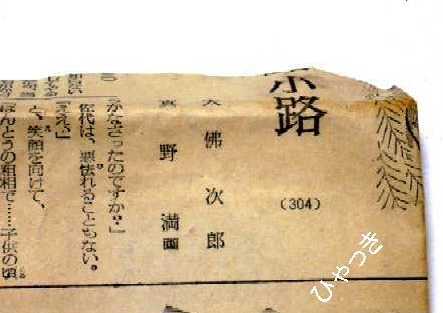 路
(304)
大佛次郎
真野満画
かなさつたのですか?」
代は、悪怯れることもない。
「ええ」
と、笑顔を向けて、
ほんとうの粗相で……子供の頃
ひやつき